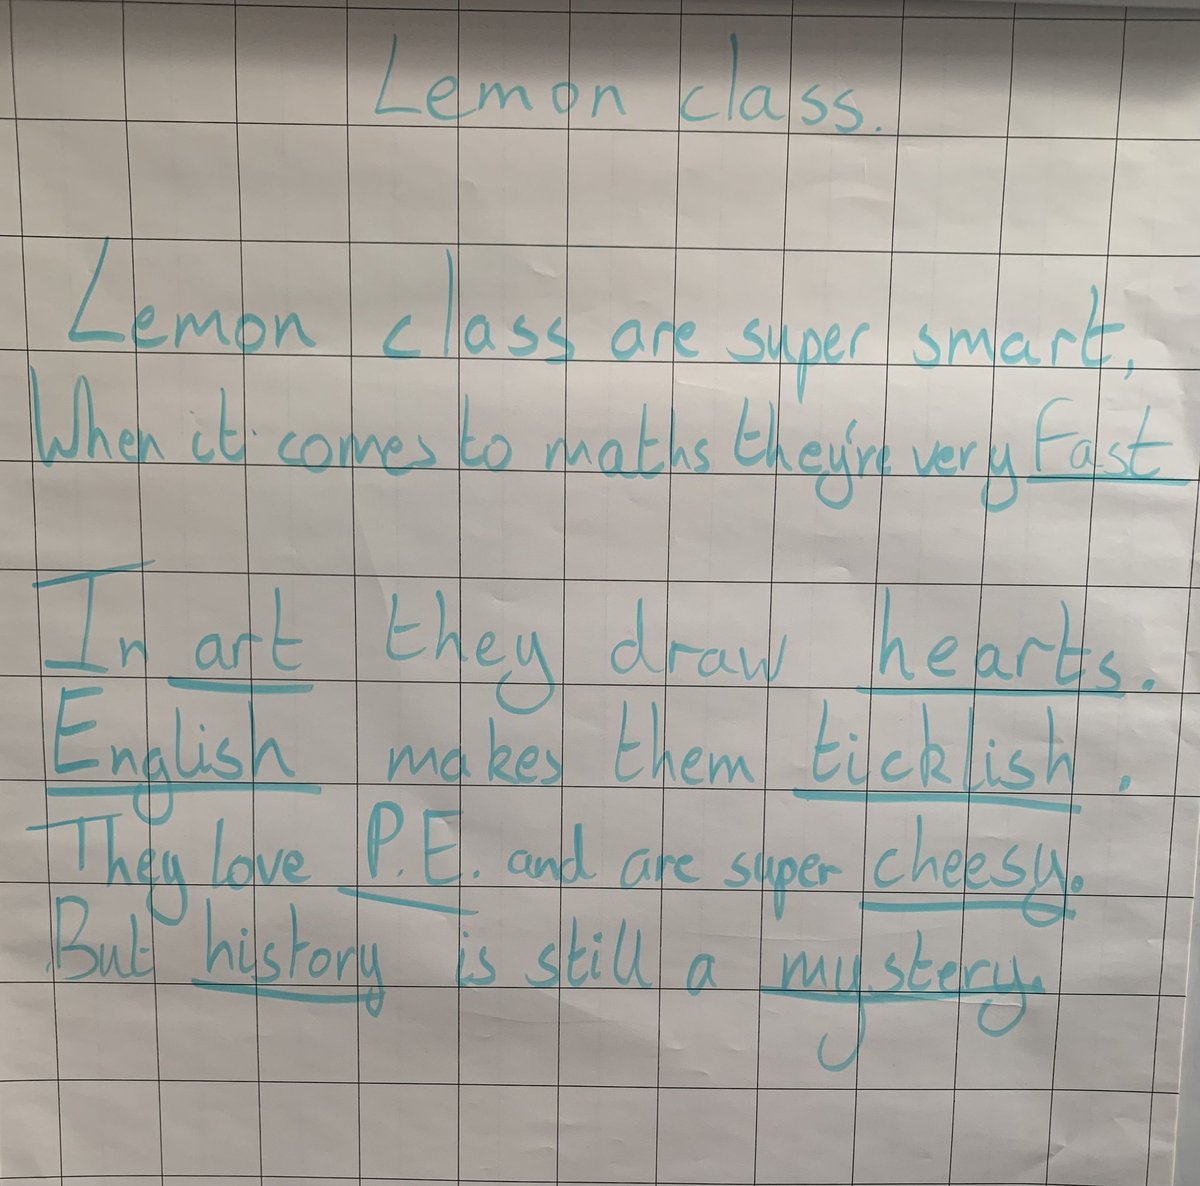 Lemon class.
Lemon class are super smart,
When it comes to maths they're very fast
In art they draw hearts.
English makes them ticklish.
They love P.E. and are super cheesy.
But history is still a mystery.